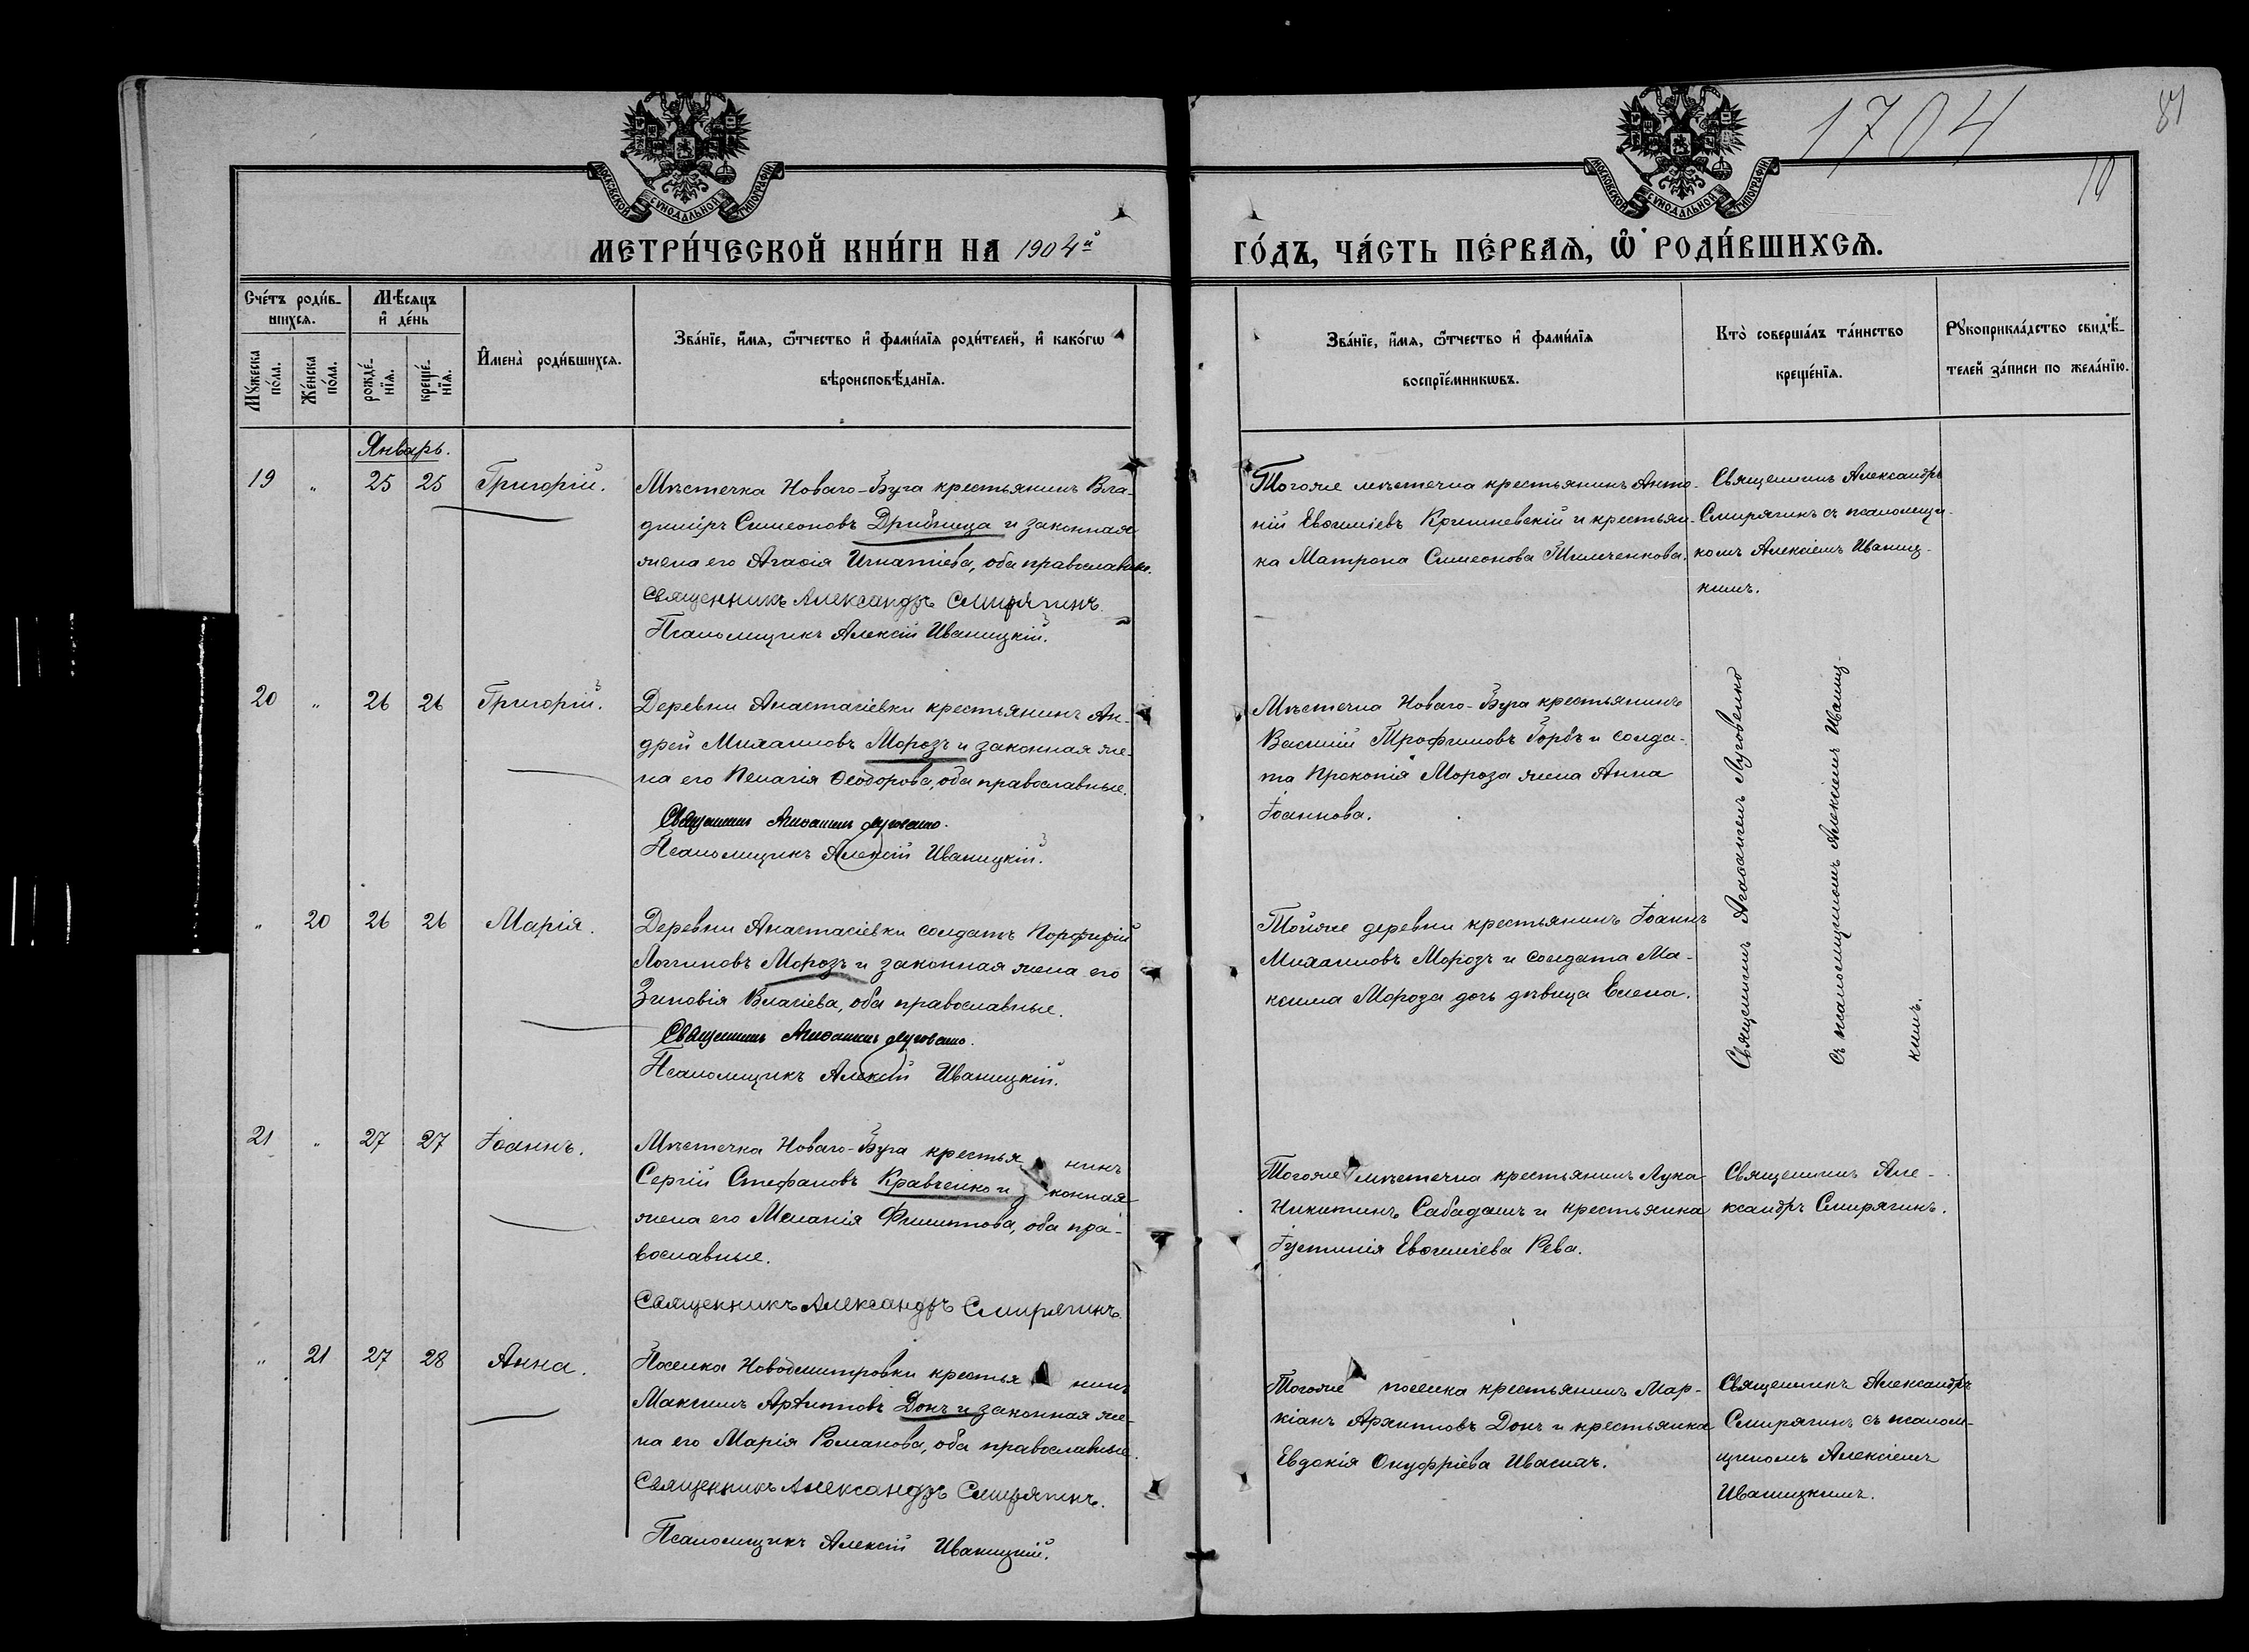 1704
81
10
МОСКОВСКОЙ СѴНОДАЛЬНОЙ ТИПОГРАФІИ
МОСКОВСКОЙ СѴНОДАЛЬНОЙ ТИПОГРАФІИ
МЕТРИ́ЧЕСКОЙ КНИ́ГИ НА 1904й ГО́ДЪ, ЧА́СТЬ ПЕ́РВАЯ, Ѡ҆ РОДИ́ВШИХСЯ.
Сче́тъ роди́в-
шихся.
Мѣ́сяцъ
и҆ де́нь
Мꙋ́жеска
по́ла.
Же́нска
по́ла.
рожде́-
нїя.
креще́-
нїя.
И҆мена̀ роди́вшихся.
Зва́нїе, и҆́мя, ѻ҆́тчество и҆ фами́лїя роди́телей, и҆ како́гѡ
вѣроисповѣ́данїя.
Зва́нїе, и҆́мя, ѻ҆́тчество и҆ фами́лїя
воспрїе́мникѡвъ.
Кто̀ соверша́лъ та́инство
креще́нїя.
Рꙋкоприкла́дство свидѣ́-
телей за́писи по жела́нїю.
Январь.
19 " 25 25 Григорій.
Мѣстечка Новаго-Буга крестьянинъ Вла-
диміръ Симеоновъ Дрибница и законная
жена его Агаѳія Игнатіева, оба православные.
Священникъ Александръ Смирягинъ.
Псаломщикъ Алексій Иваницкій.
Тогоже мѣстечка крестьянинъ Анто-
ній Евѳиміевъ Кришневскій и крестьян-
ка Матрона Симеонова Тимченкова.
Священникъ Александръ
Смирягинъ съ псаломщи-
комъ Алексіемъ Иваниц-
кимъ.
20 " 26 26 Григорій.
Деревни Анастасіевки крестьянинъ Ан-
дрей Михаиловъ Морозъ и законная же-
на его Пелагія Ѳеодорова, оба православные.
Священникъ Агаѳангелъ Луговенко.
Псаломщикъ Алексій Иваницкій.
Мѣстечка Новаго-Буга крестьянинъ
Василій Трофимовъ Горбъ и солда-
та Прокопія Мороза жена Анна
Іоаннова.
Священникъ Агаѳангелъ Луговенко
съ псаломщикомъ Алексіемъ Иваниц-
кимъ.
" 20 26 26 Марія.
Деревни Анастасіевки солдатъ Порфирій
Логгиновъ Морозъ и законная жена его
Зиновія Власіева, оба православные.
Священникъ Агаѳангелъ Луговенко.
Псаломщикъ Алексій Иваницкій.
Тойже деревни крестьянинъ Іоаннъ
Михаиловъ Морозъ и солдата Ма-
ксима Мороза дочь дѣвица Елена.
21 " 27 27 Іоаннъ.
Мѣстечка Новаго-Буга крестьянинъ
Сергій Стефановъ Кравченко и законная
жена его Меланія Филиппова, оба пра-
вославные.
Священникъ Александръ Смирягинъ.
Тогоже мѣстечка крестьянинъ Лука
Никитинъ Сабадашъ и крестьянка
Іустинія Евѳиміева Рева.
Священникъ Але-
ксандръ Смирягинъ.
" 21 27 28 Анна.
Поселка Новодмитровки крестьянинъ
Максимъ Архиповъ Донъ и законная же-
на его Марія Романова, оба православные.
Священникъ Александръ Смирягинъ.
Псаломщикъ Алексій Иваницкій.
Тогоже поселка крестьянинъ Мар-
кіанъ Архиповъ Донъ и крестьянка
Евдокія Онуфріева Ивасиха.
Священникъ Александръ
Смирягинъ съ псалом-
щикомъ Алексіемъ
Иваницкимъ.